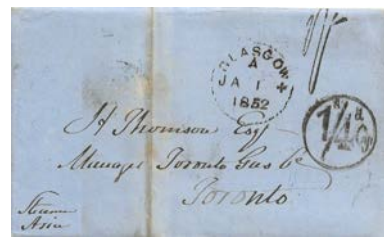 GLASGOW
A
A 1
1852
H Thomson Esq
Manager Toronto Gas Co
Toronto
Steamer
Asia